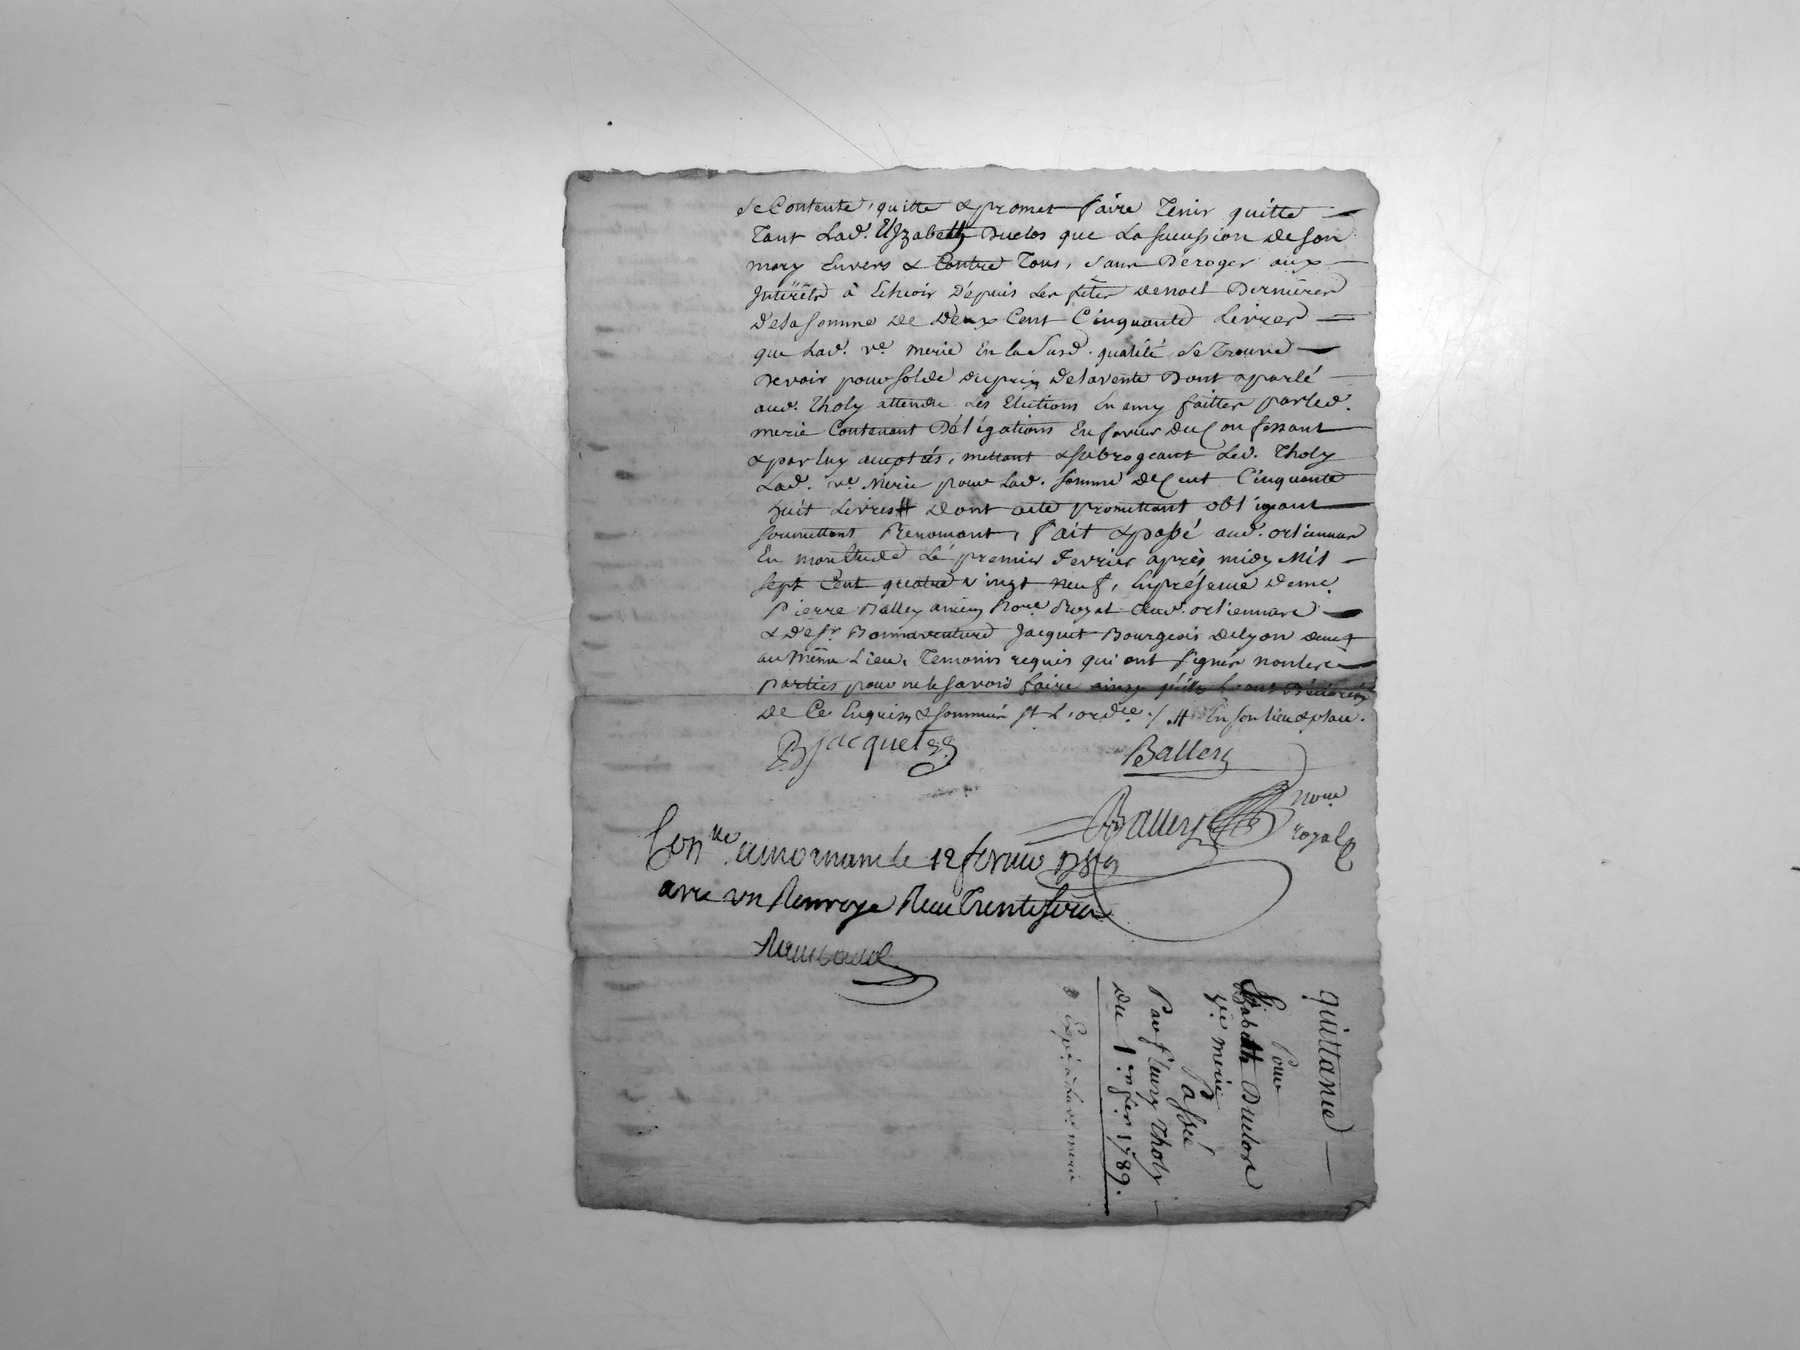 se Contente, quitte & promet faire Tenir quitte
Tant Lad. Elizabeth Duclos que La sucession de son
mary Envers & Contre Tous, sans Déroger aux
Intérêts à Echeoir Dépuis les fêtes denoel Dernieres
de la somme de deux Cent Cinquante Livres
que Lad. ve. merie En la Susd. qualité se Trouve
Devoir pour solde du prix de la vente Dont a parlé
aud. Tholy attendu Les Elections En amy faittes par led.
merie Contenant Délégations En faveur du Confessant
& par luy aceptées, mettant & subrogeant Led. Tholy
Lad. ve. Merie pour Lad. somme de Cent Cinquante
huit Livres # Dont acte promettant obligeant
soumettant Renonçant, fait & passé aud. orlienas
En mon Etude Le premier fevrier après midy Mil
sept Cent quatre vingt neuf, En présence de me.
Pierre Balley ancien Nore. Royal aud. orlienas
& de sr. Bonnaventure Jacquet Bourgeois de Lyon demt
au même Lieu, Temoins requis qui ont signés non les
parties pour ne le savoir faire ainsy qu'ils L'ont Déclarés
De Ce Enquis & sommés st. L'ordce. / # En son lieu & place.
B jacquet
Balley
Balley
Nore
royal
Con.lle a mornant le 12 fevrier 1789
avec un Renvoye Reçu Trente sols
quittance
Pour
Elizabeth Duclos
ve. merie
Passée
Par fleury Tholy
Du 1er fer. 1789.
Expé. à La ve. merie